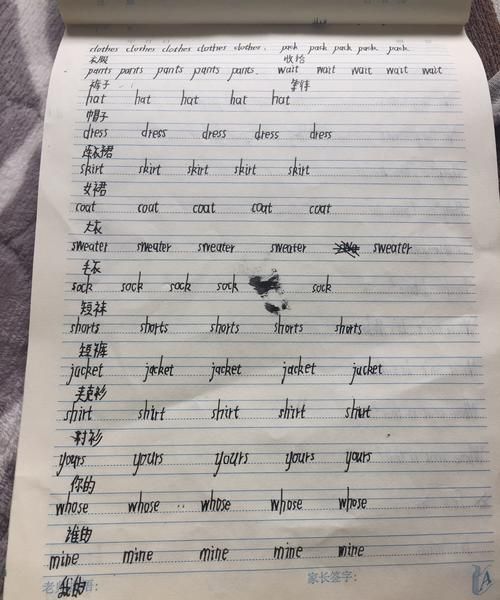 clothes clothes clothes clothes clothes. pack pack pack pack pack
衣服 收拾
pants pants pants pants pants. wait wait wait wait wait
裤子 等待
hat hat hat hat hat
帽子
dress dress dress dress dress
连衣裙
skirt skirt skirt skirt skirt
女裙
coat coat coat coat coat
大衣
sweater sweater sweater sweater sweater
毛衣
sock sock sock sock sock
短袜
shorts shorts shorts shorts shorts
短裤
jacket jacket jacket jacket jacket
夹克衫
shirt shirt shirt shirt shirt
衬衫
yours yours yours yours yours
你的
whose whose whose whose whose
谁的
mine mine mine mine mine
我的
家长签字: